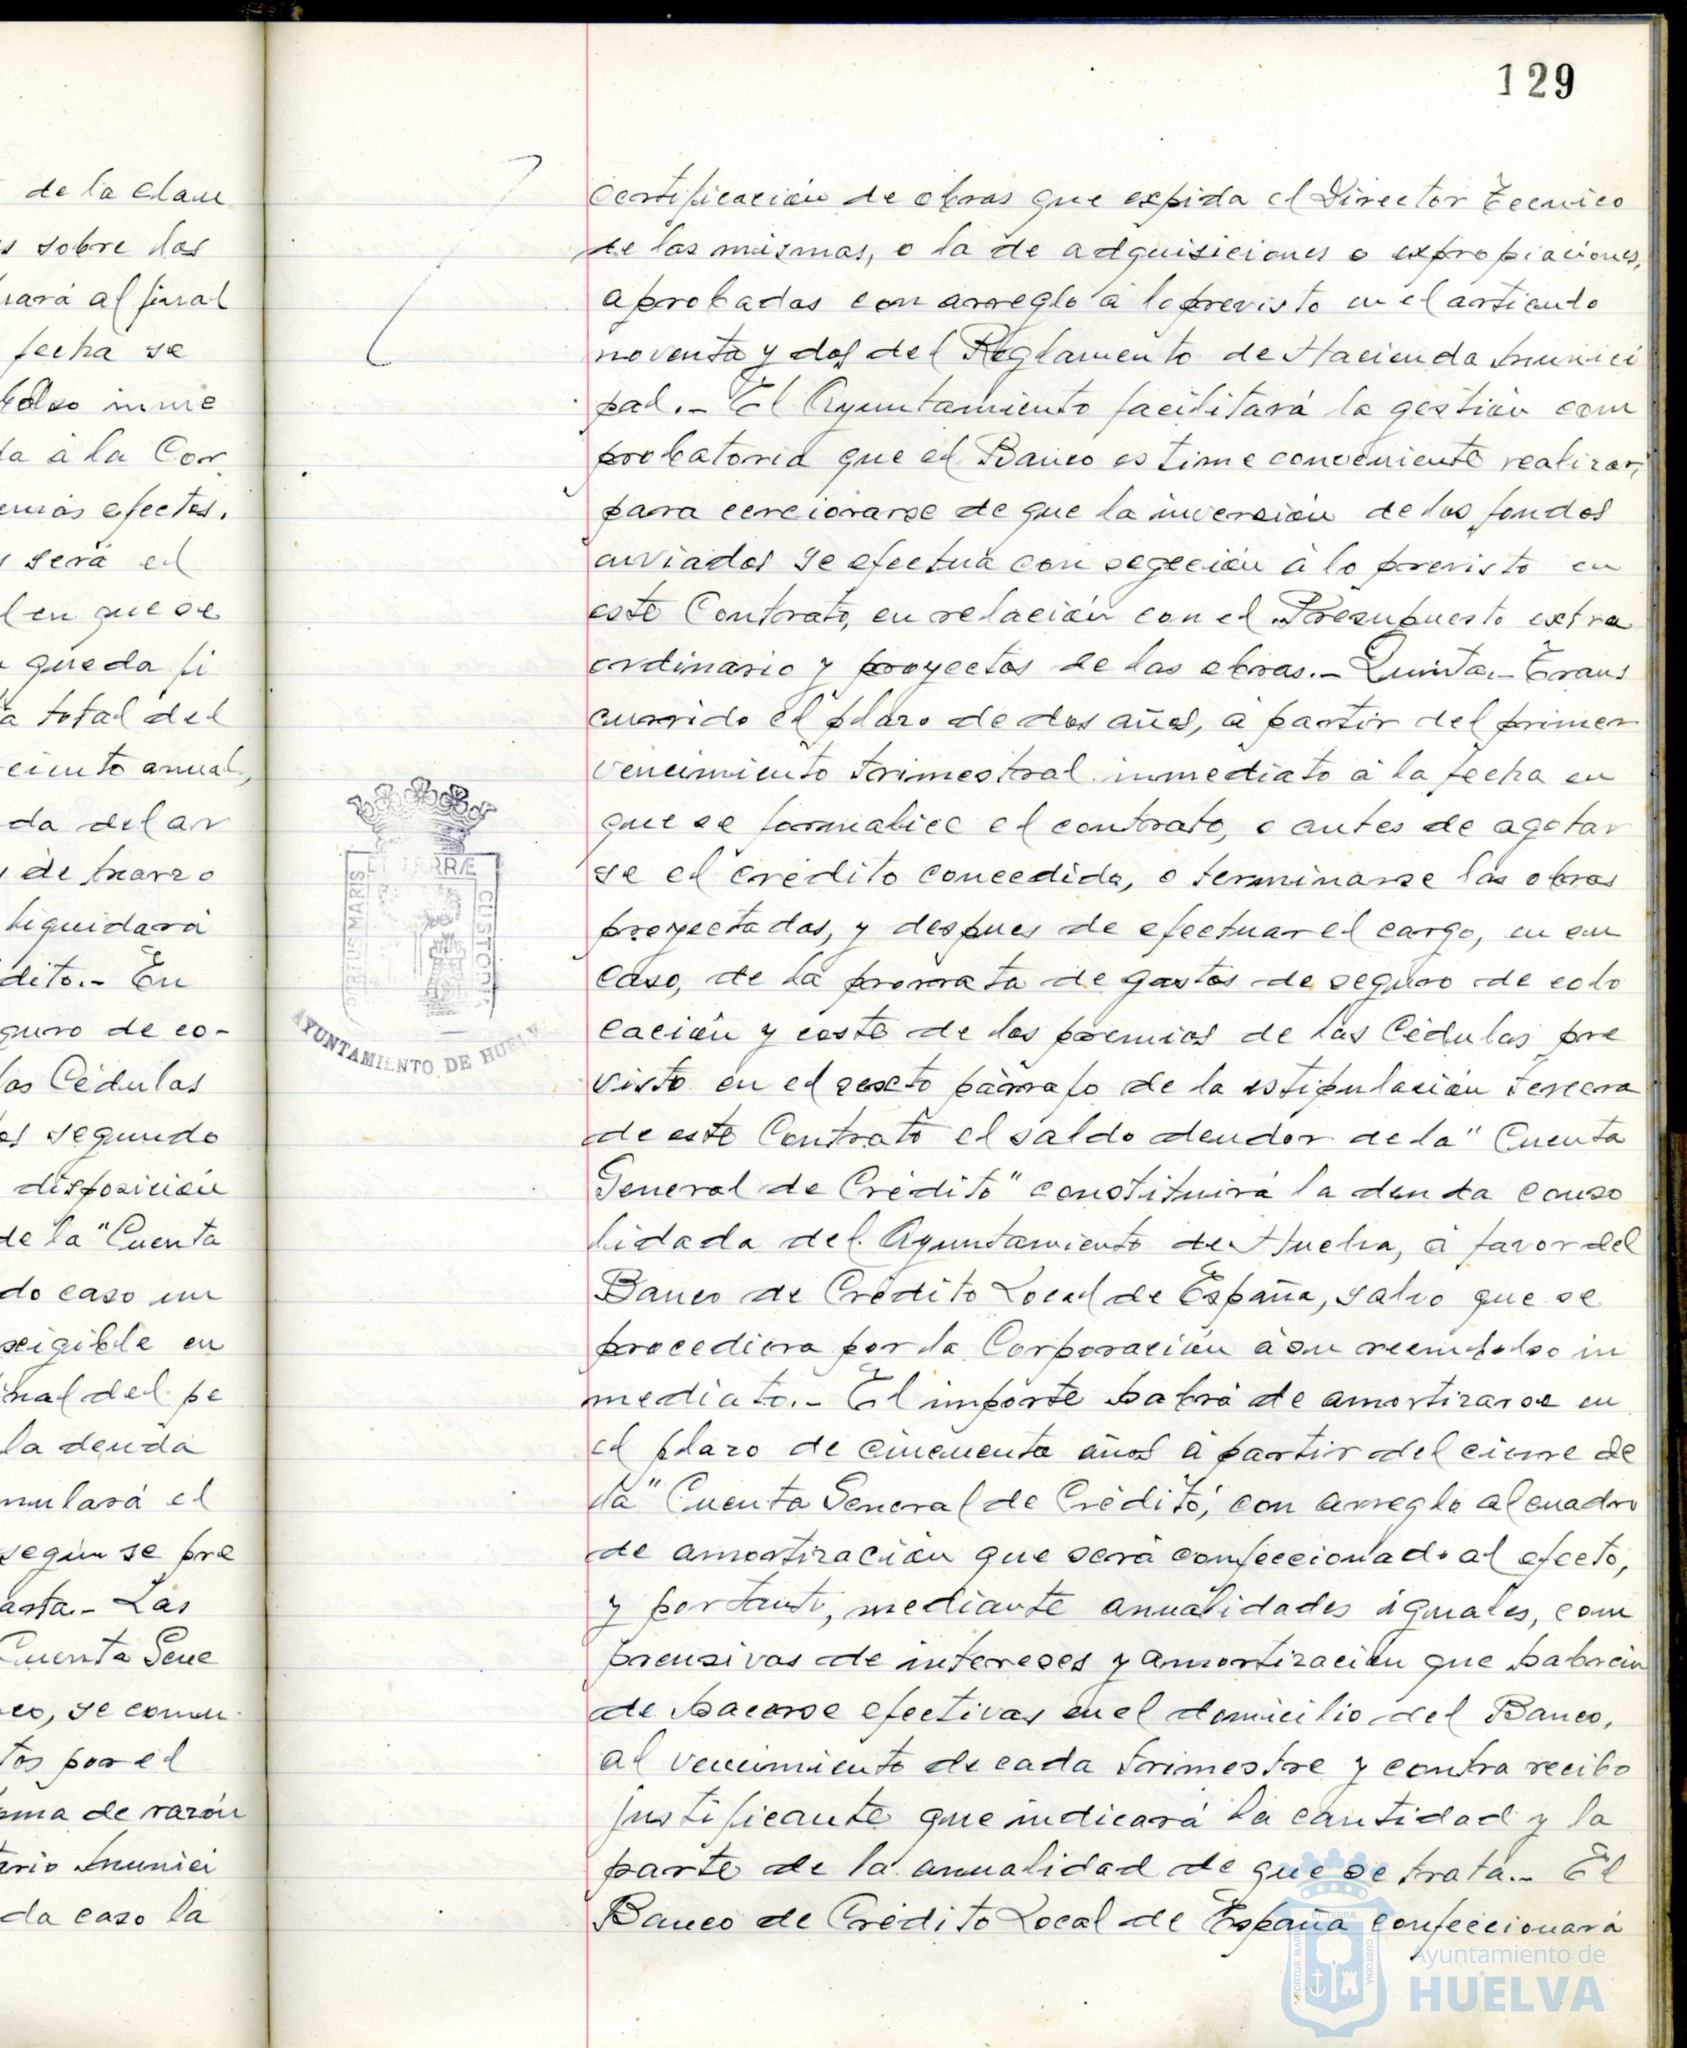 129
de la clau
s sobre las
rará al final
fecha se
bolso inme
da á la Cor
emás efectos.
será el
l en que se
queda fi
a total del
cimto anual,
da del ar
de marzo
liquidará
dito.- En
guro de co-
las Cédulas
os segundo
disposición
de la "Cuenta
do caso un
xigible en
nal del pe
la deuda
mulará el
según se pre
arta.- Las
Cuenta Gene
co, se comu
tos por el
oma de razón
ario Munici
da caso la
certificación de obras que expida el Director Técnico
de las mismas, o la de adquisiciones o expropiaciones,
aprobadas con arreglo á lo previsto en el artículo
noventa y dos del Reglamento de Hacienda Munici
pal.- El Ayuntamiento facilitará la gestión com
probatoria que el Banco estime conveniente realizar,
para cerciorarse de que la inversión de los fondos
enviados se efectua con segeción á lo previsto en
este Contrato, en relación con el Presupuesto extra
ordinario y proyectos de las obras.- Quinta.- Trans
currido el plazo de dos años, á partir del primer
vencimiento trimestral inmediato á la fecha en
que se formalice el contrato, o antes de agotar
se el crédito concedido, o terminarse las obras
proyectadas, y despues de efectuar el cargo, en su
caso, de la prorrata de gastos de seguro de colo
cación y coste de los premios de las Cédulas pre
visto en el sexto párrafo de la estipulación tercera
de este Contrato el saldo deudor de la "Cuenta
General de Crédito" constituirá la deuda conso
lidada del Ayuntamiento de Huelva, á favor del
Banco de Crédito Local de España, salvo que se
procediera por la Corporación á su reembolso in
mediato.- El importe habrá de amortizarse en
el plazo de cincuenta años á partir del cierre de
la "Cuenta General de Crédito", con arreglo al cuadro
de amortización que será confeccionado al efecto,
y por tanto, mediante anualidades iguales, com
prensivas de intereses y amortización que habrán
de hacerse efectivas en el domicilio del Banco,
al vencimiento de cada trimestre y contra recibo
justificante que indicará la cantidad y la
parte de la anualidad de que se trata.- El
Banco de Crédito Local de España confeccionará
PORTUS MARIS
ET TERRÆ
CUSTODIA
AYUNTAMIENTO DE HUELVA
Ayuntamiento de
HUELVA